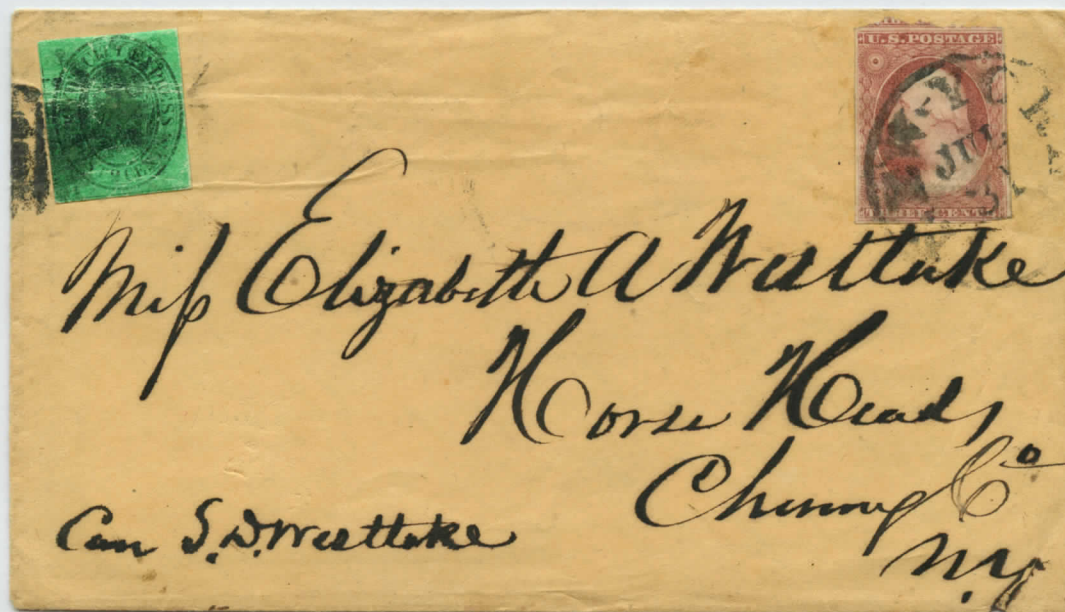 U.S.POSTAGE
JUL
THREE CENTS
Miſs Elizabeth A Westlake
Horse Heads
Chemung Co
N.Y.
Care S.D. Westlake